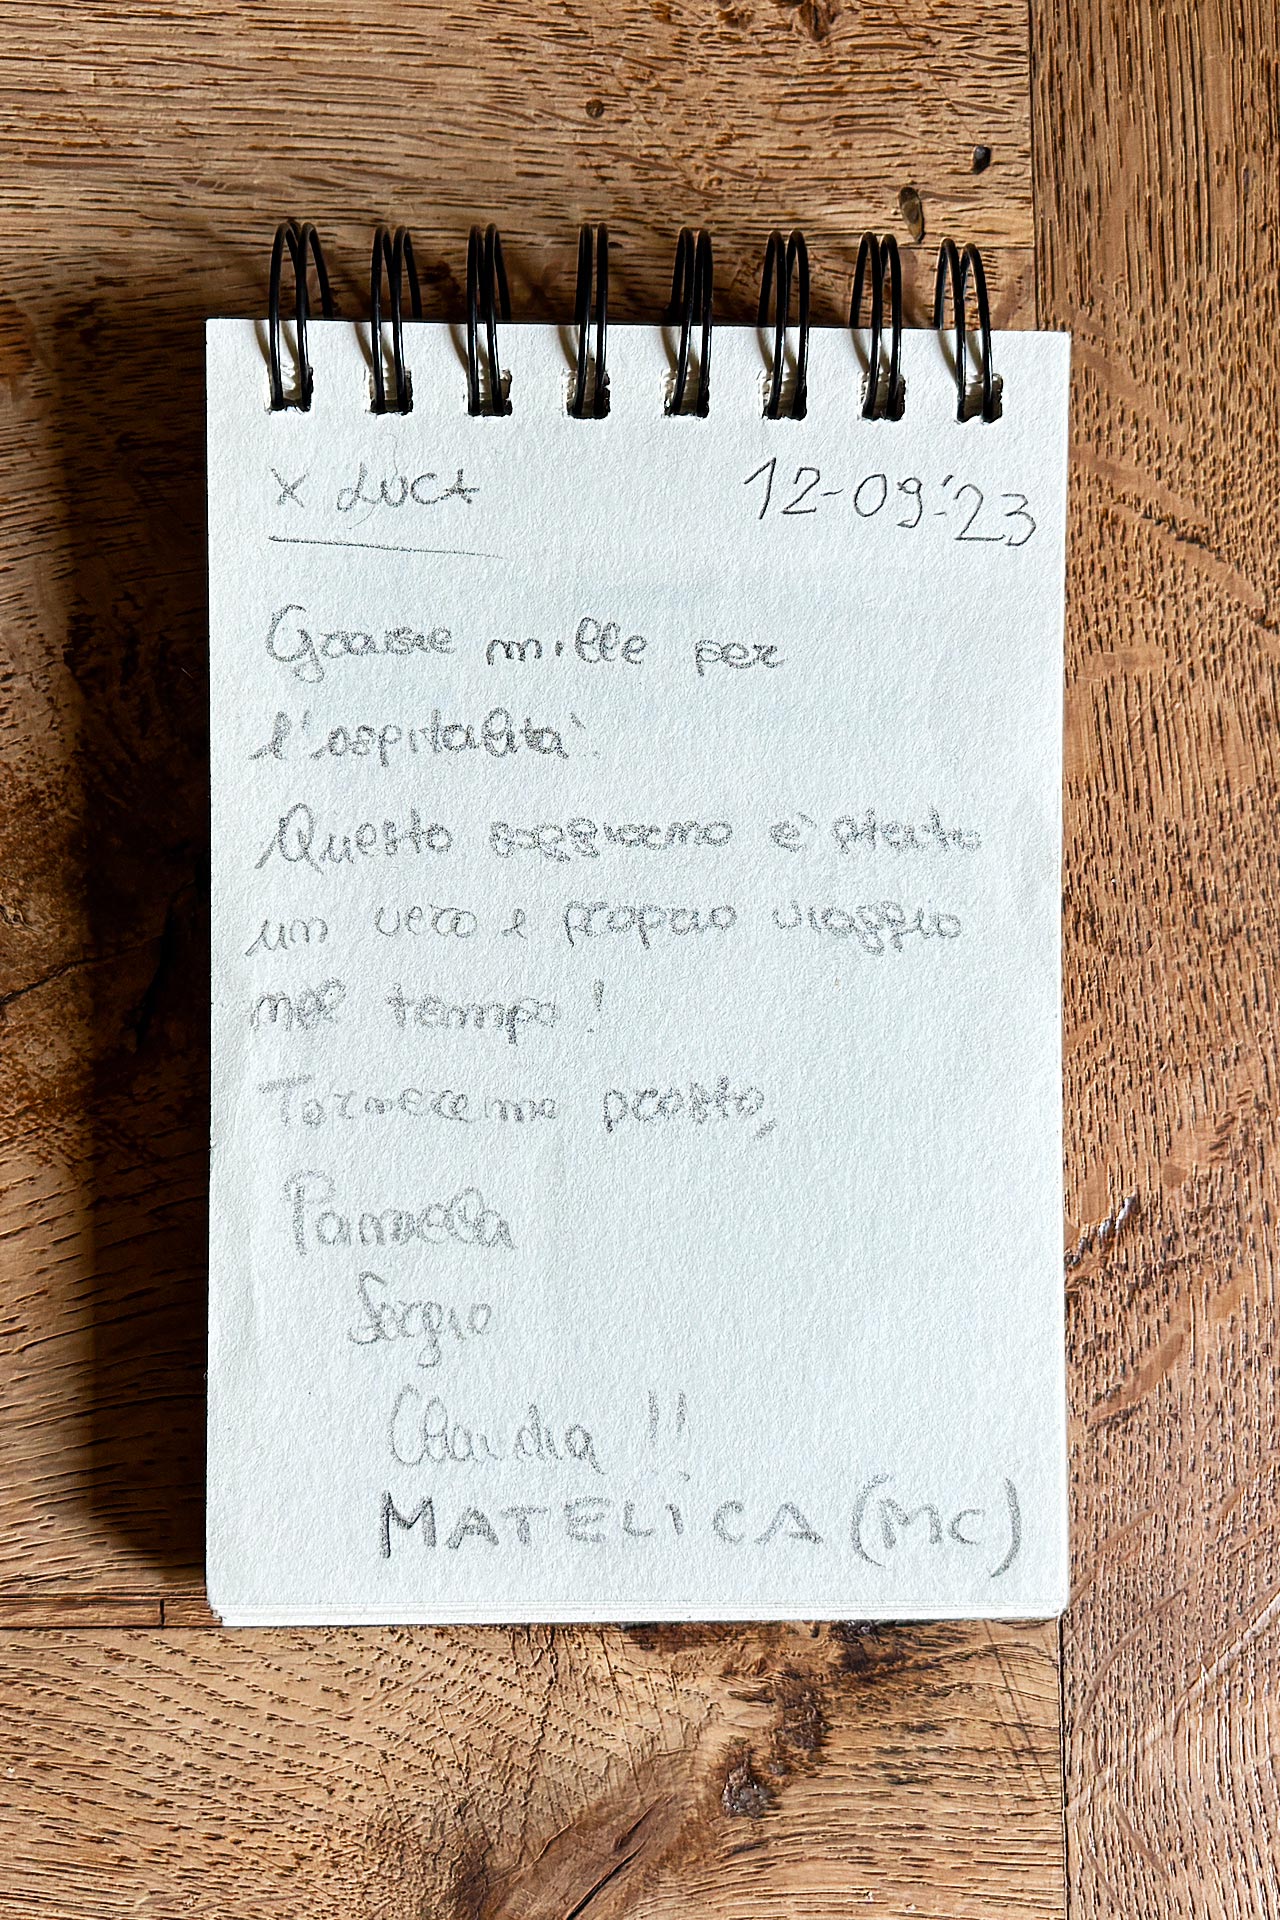 X LUCA 12-09-'23
Grazie mille per
l'ospitalità.
Questo soggiorno è stato
un vero e proprio viaggio
nel tempo!
Torneremo presto,
Pamela
Sergio
Claudia !!
MATELICA (MC)